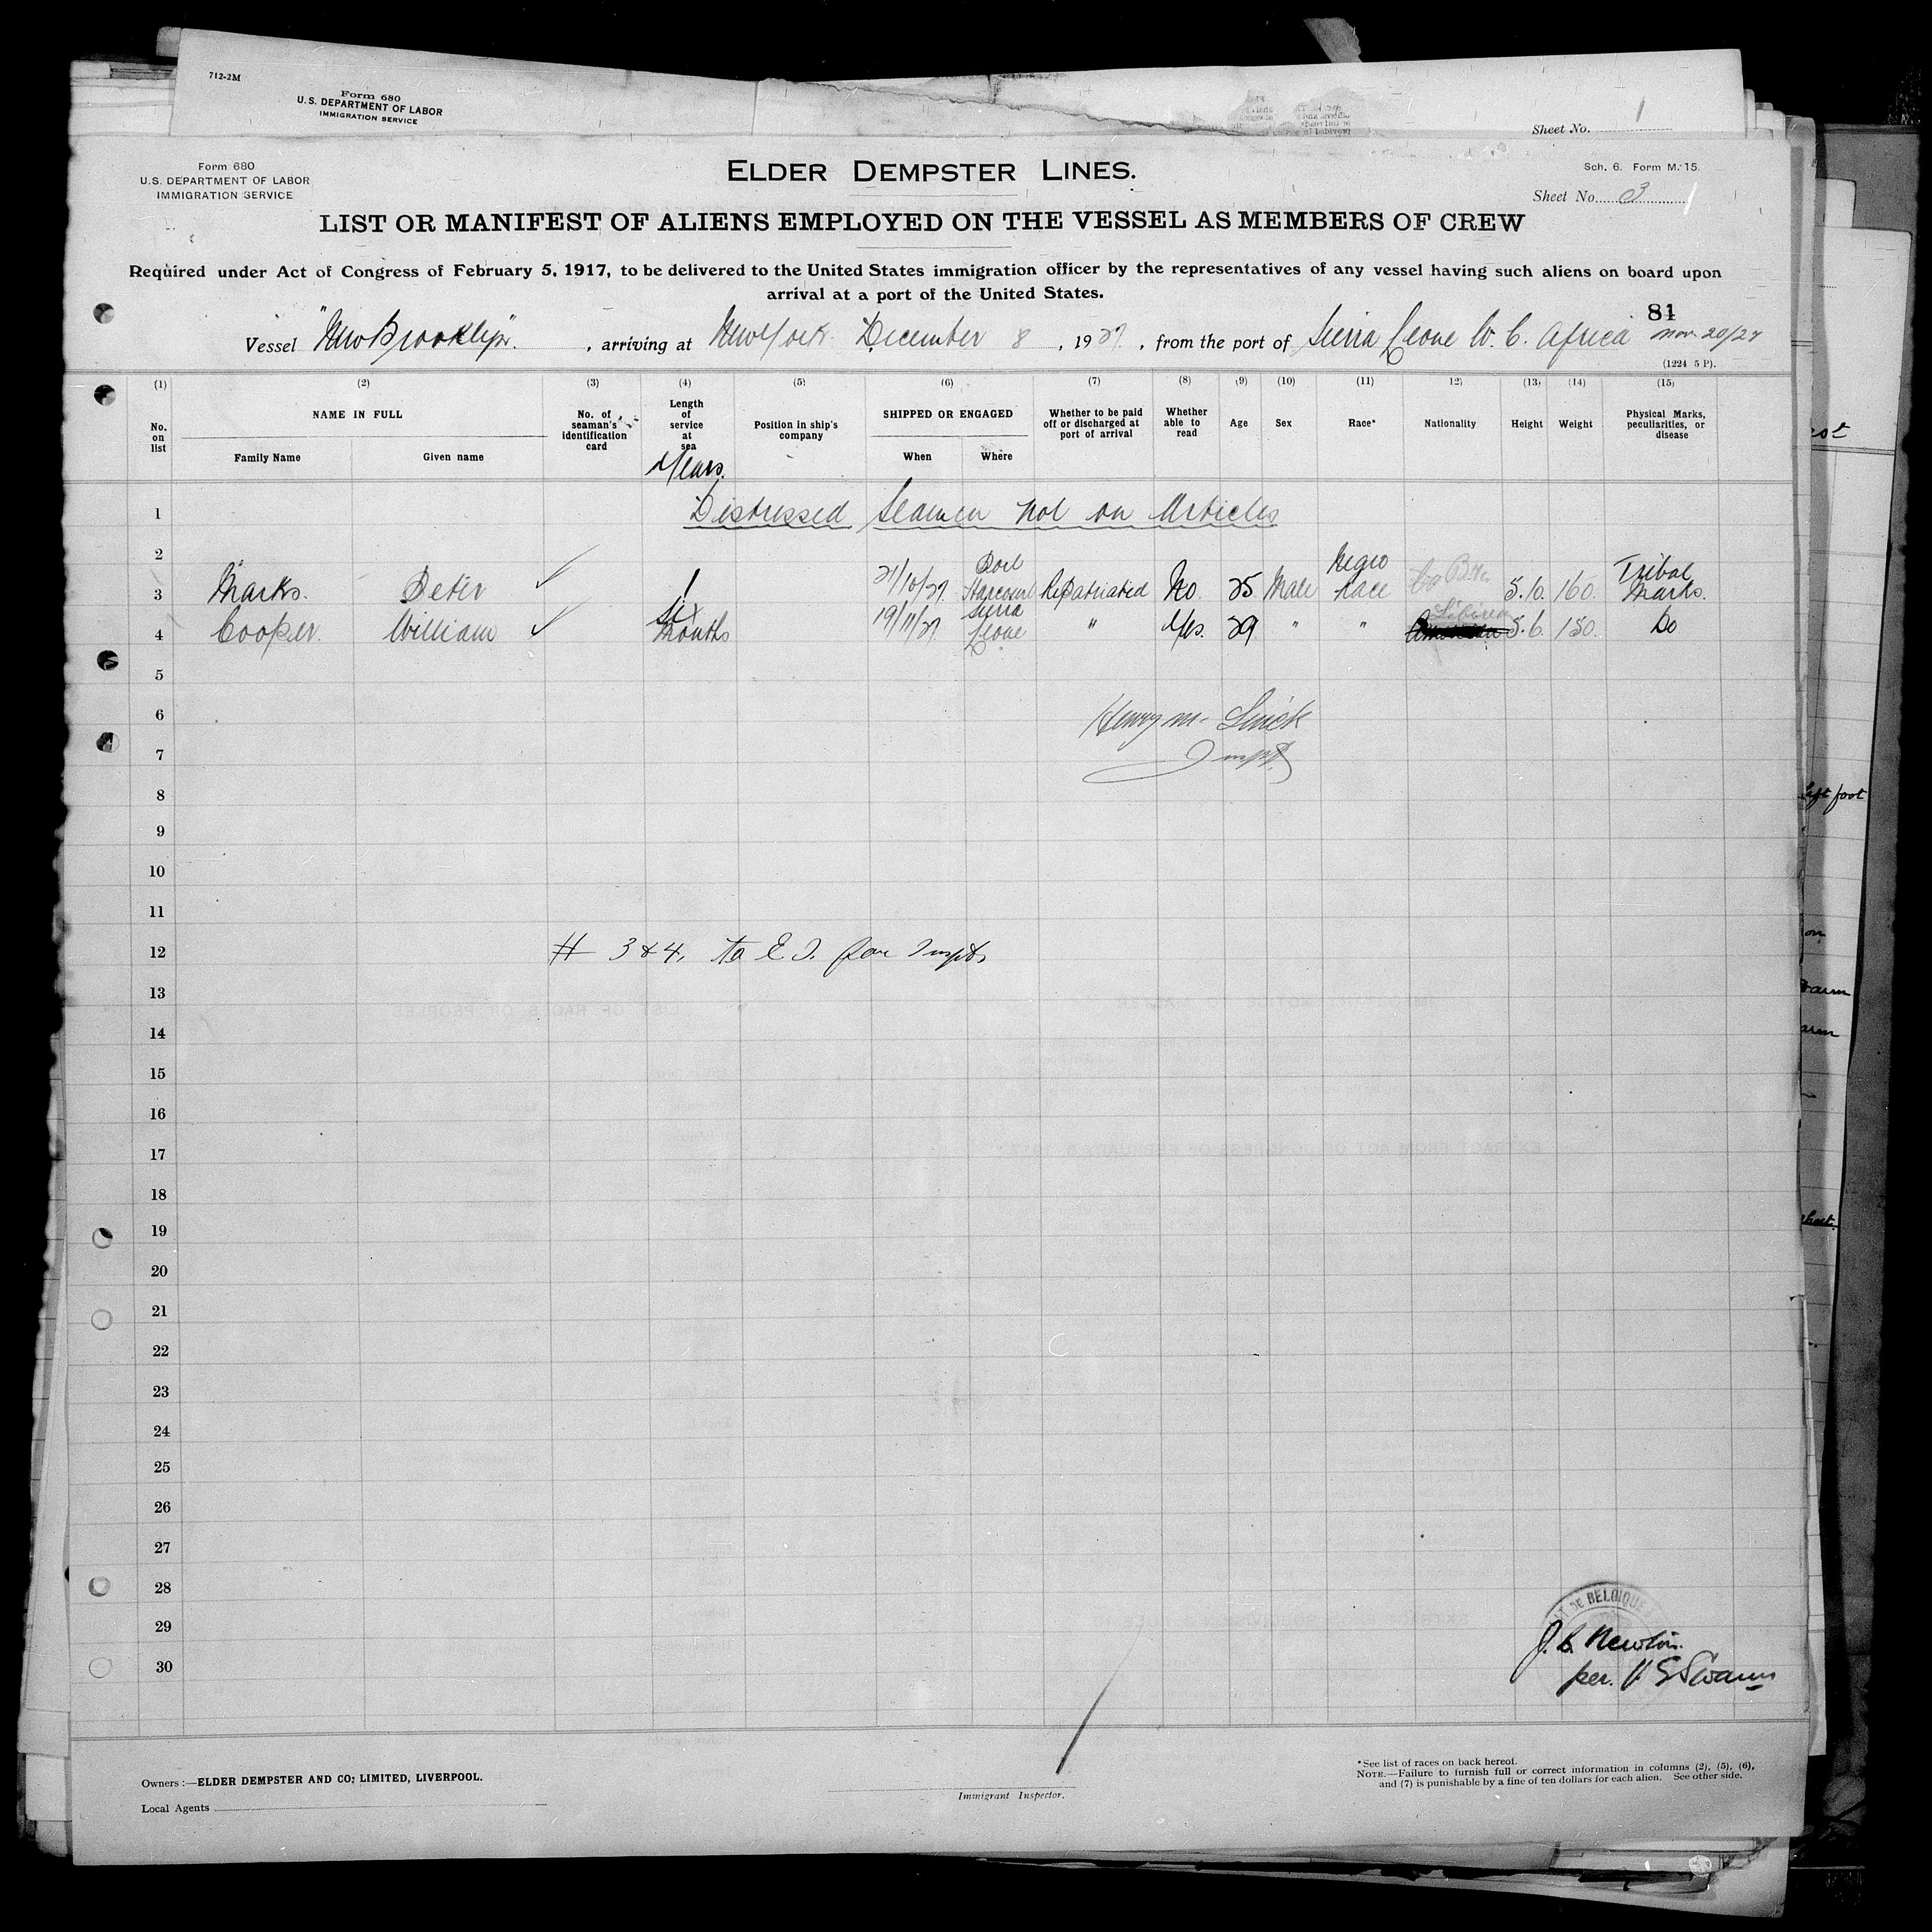 712-2M
Form 680
U.S. DEPARTMENT OF LABOR
IMMIGRATION SERVICE
Sheet No. 1
Form 680
U.S. DEPARTMENT OF LABOR
IMMIGRATION SERVICE
ELDER DEMPSTER LINES.
Sch. 6. Form M. 15.
Sheet No. 3 1
LIST OR MANIFEST OF ALIENS EMPLOYED ON THE VESSEL AS MEMBERS OF CREW
Required under Act of Congress of February 5, 1917, to be delivered to the United States immigration officer by the representatives of any vessel having such aliens on board upon
arrival at a port of the United States.
81
Vessel "New Brooklyn". , arriving at New York December 8 , 1927. , from the port of Sierra Leone W. C. Africa Nov. 20/27
(1224 5 P).
(1) (2) (3) (4) (5) (6) (7) (8) (9) (10) (11) 12) (13) (14) (15)
No. on list NAME IN FULL Family Name Given name No. of seaman's identification card Length of service at sea Years. Position in ship's company SHIPPED OR ENGAGED When Where Whether to be paid off or discharged at port of arrival Whether able to read Age Sex Race* Nationality Height Weight Physical Marks, peculiarities, or disease
1 Distressed Seamen not on Articles
2
3 Marks. Peter ✓ 1 21/10/27. Port Harcourt Repatriated No. 25 Male Negro Race 5.10. 160. Tribal Marks.
4 Cooper. William ✓ Six Months 19/11/27. Sierra Leone " Yes. 29 " " Liberia 5.6. 150. Do
5
6 Henry M.
7 Inspt.
8
9
10
11
12 # 3 & 4, to E. I. for Inspt.
13
14
15
16
17
18
19
20
21
22
23
24
25
26
27
28
29
30
DE BELGIQUE
J. C. Newton.
per. V S Swann
Owners :—ELDER DEMPSTER AND CO; LIMITED, LIVERPOOL.
Local Agents
Immigrant Inspector.
*See list of races on back hereof.
NOTE.—Failure to furnish full or correct information in columns (2), (5), (6),
and (7) is punishable by a fine of ten dollars for each alien. See other side.
left foot
arm